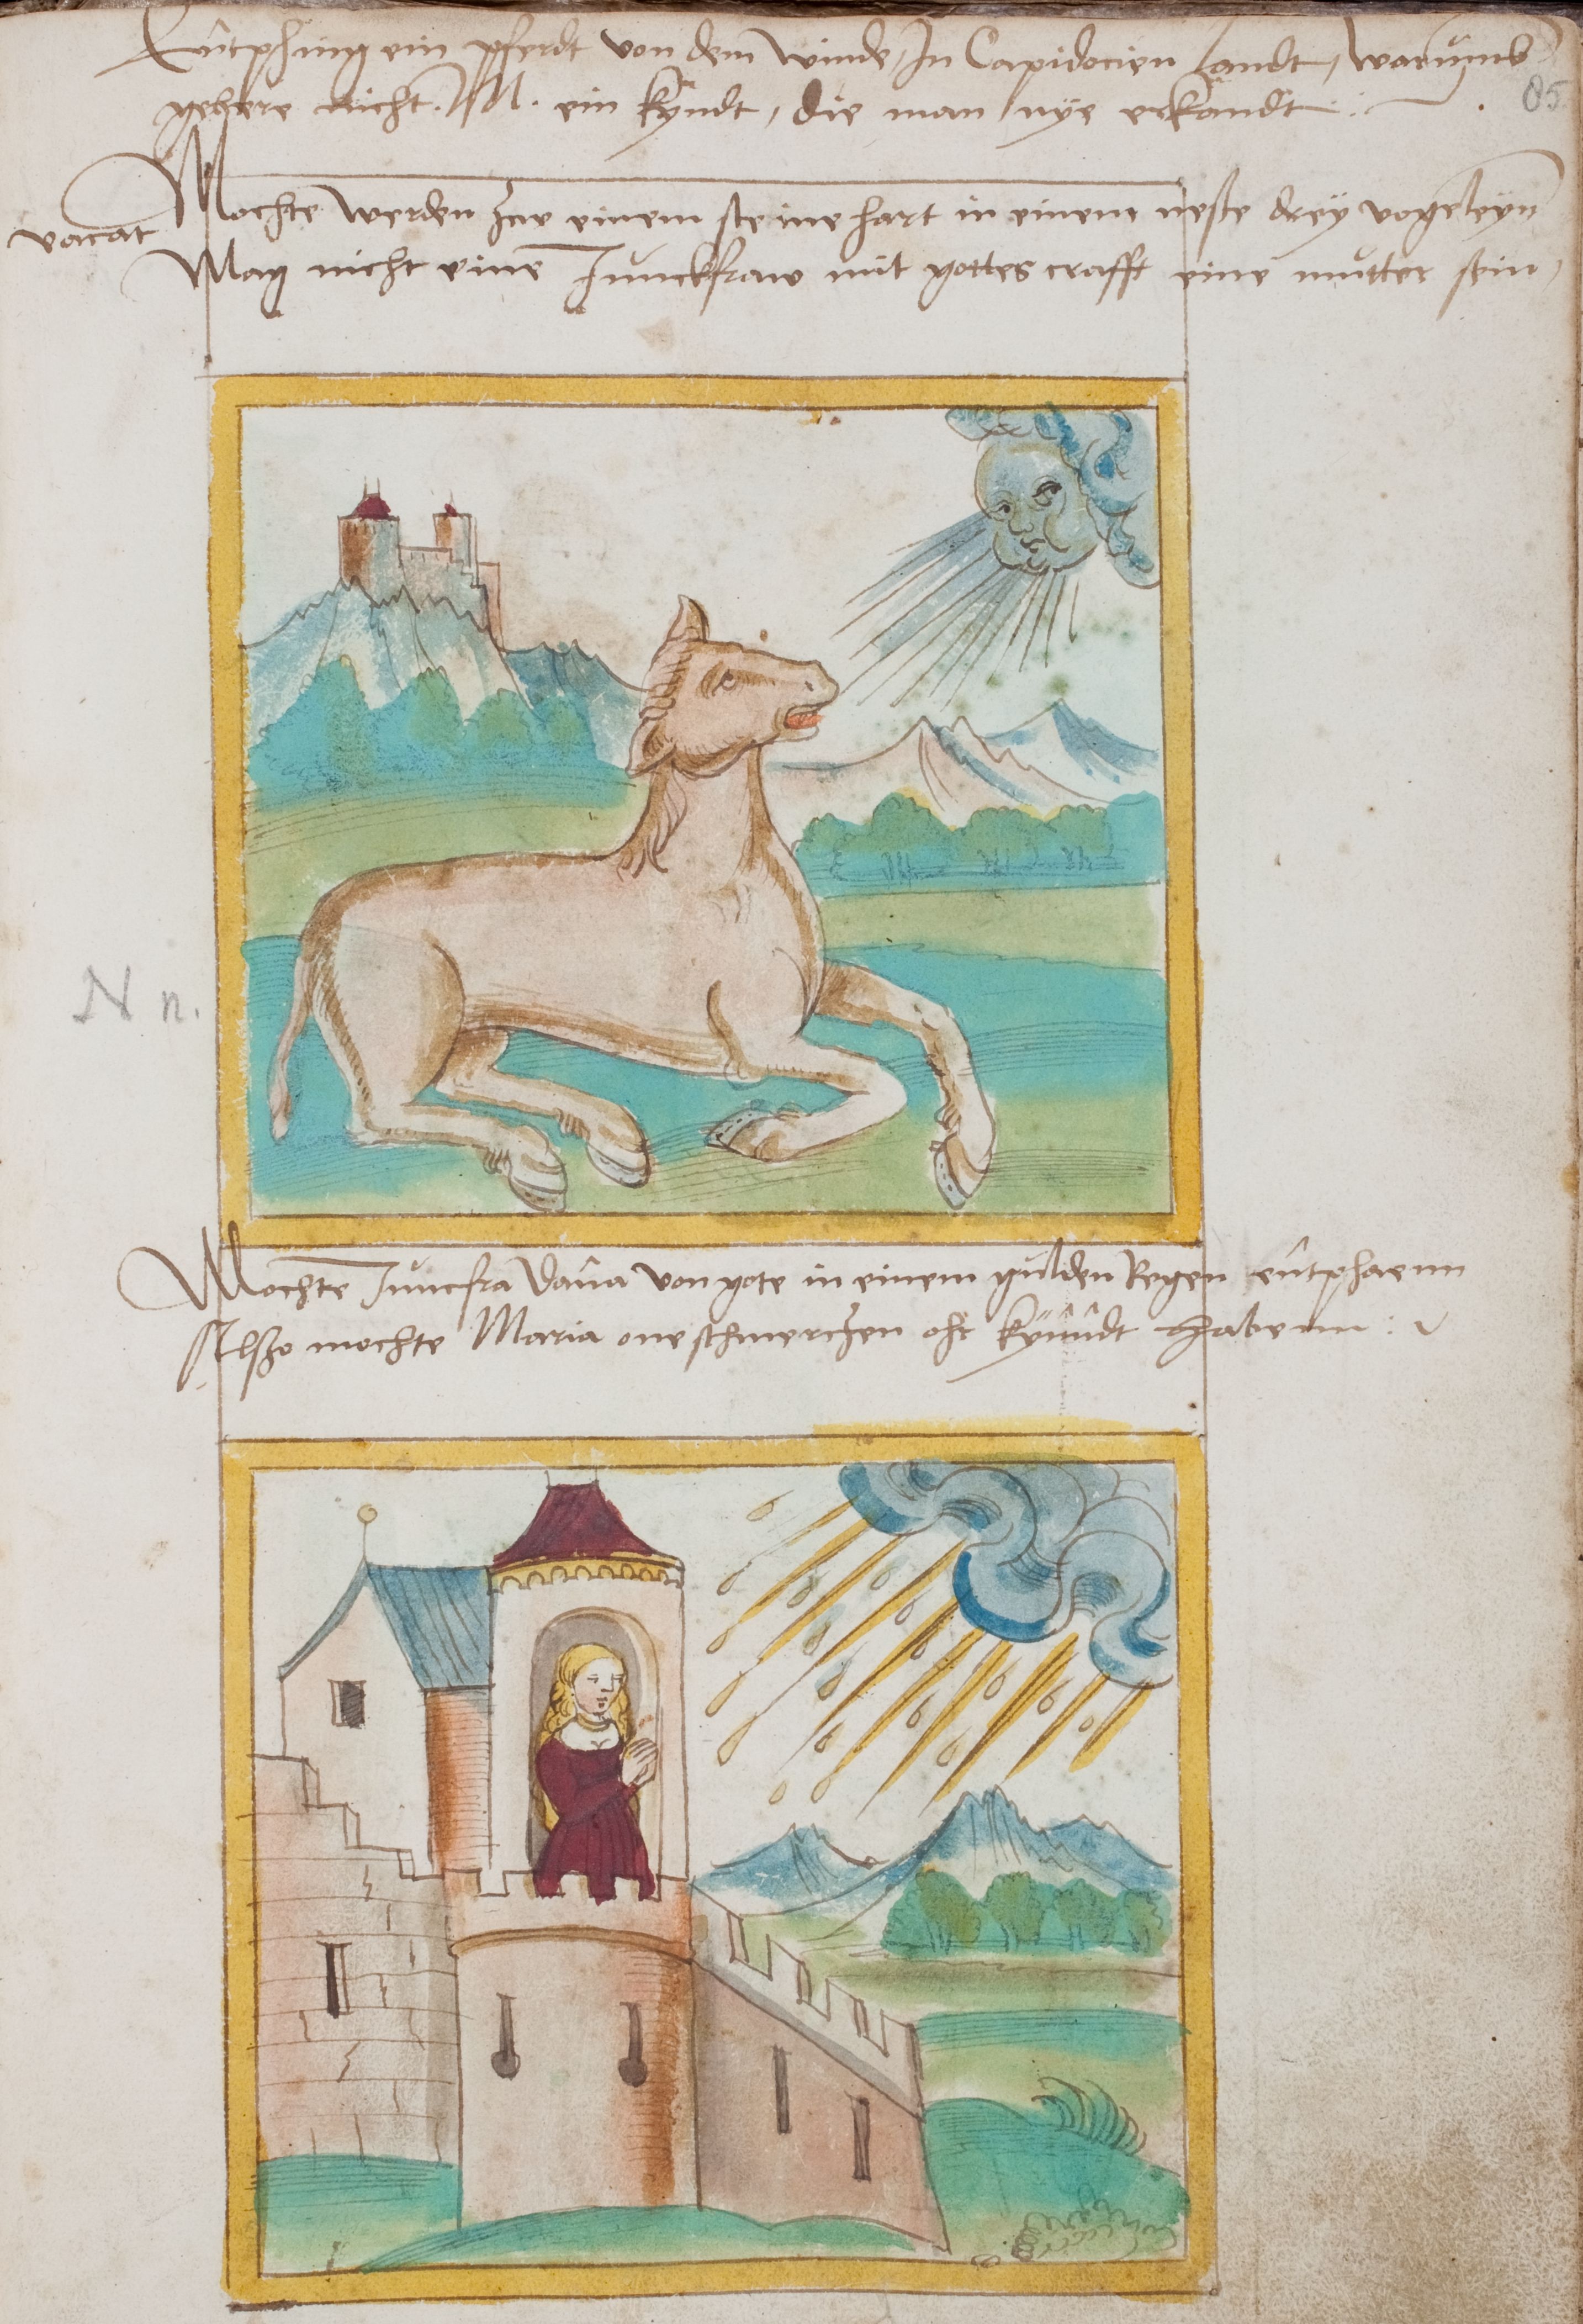 Entphing ein pferdt von dem winde, In Capidocien landt, warumb
gebere nicht. M. ein kyndt, die man nye erkandt :
85
Mochte werden zcw einem steine hart in einem neste drey vogeleyn
vacat
Mag nicht eine Junckfraw mit gottes crafft eine mutter sein,
N n.
Mochte Juncfra Dana von gote in einem gulden Regen entphaenn
Alßo mochte Maria one schmerczen ohr kÿnndt habenn :